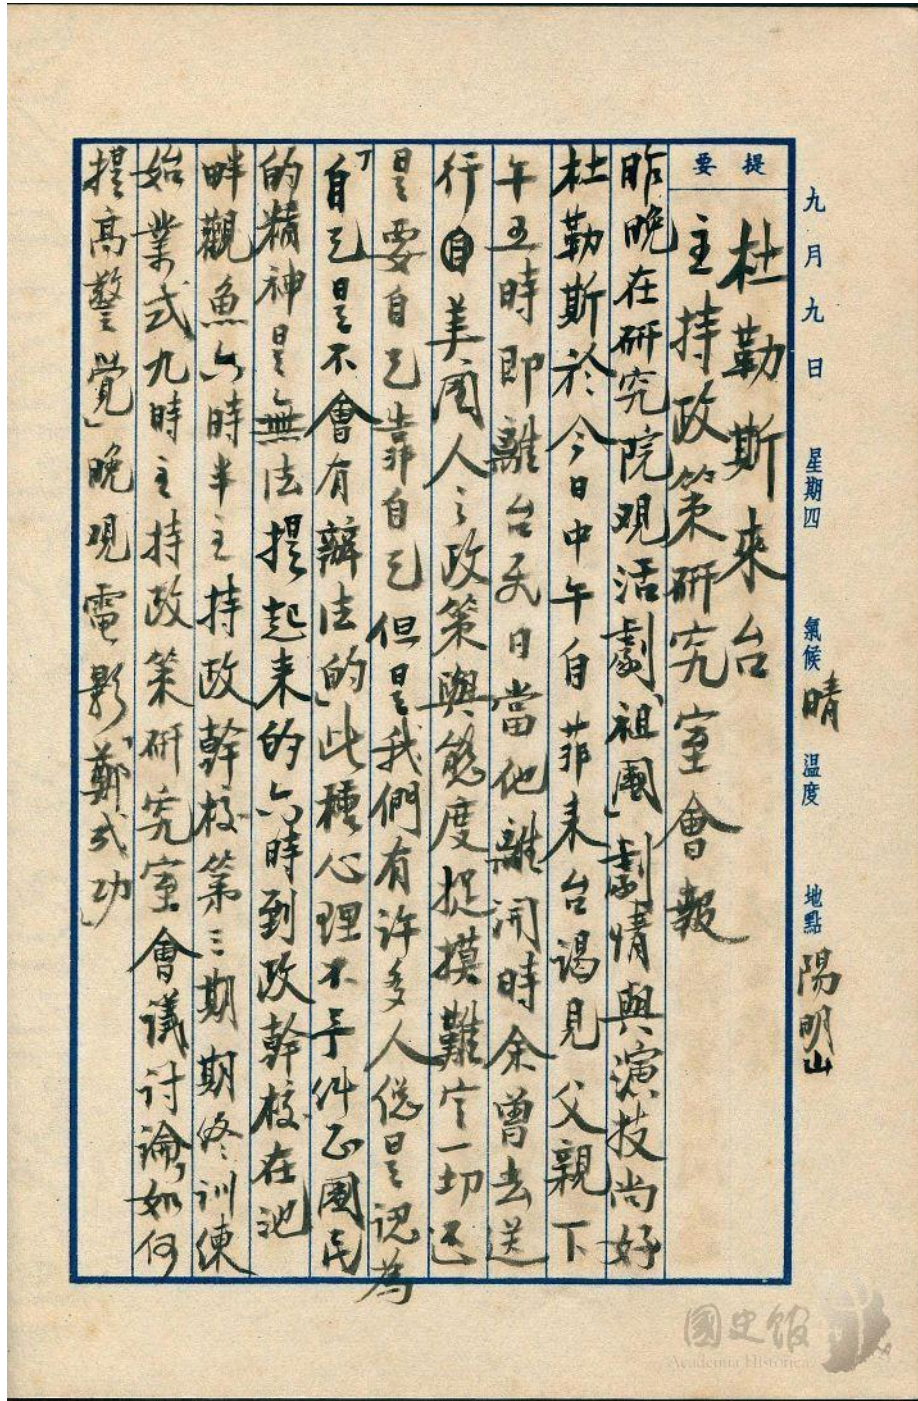 九月九日 星期四 氣候 晴 溫度 地點 陽明山
提要
杜勒斯來台
主持政策研究室會報
昨晚在研究院观活劇「祖國」劇情與演技尚好
杜勒斯於今日中午自菲来台謁見父親下
午五時即離台去日當他離开時余曾去送
行自美國人之政策與態度捉摸難定一切还
是要自己靠自己但是我們有許多人總是認為
「自己是不會有辦法的」此種心理不予糾正國民
的精神是無法提起来的六時到政幹校在池
畔觀魚六時半主持政幹校第三期期終訓練
始業式九時主持政策研究室會議討論「如何
提高警覺」晚观電影「鄭成功」
國史館
Academia Historica